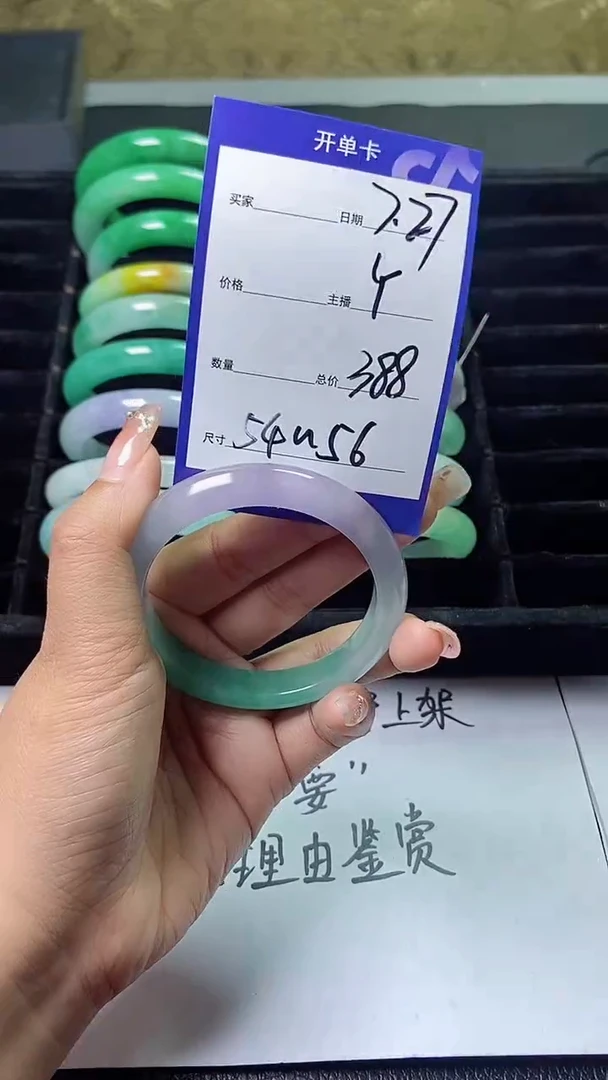 开单卡
买家 日期 7.27
价格 主播 Y
数量 总价 388
尺寸 54~56
上架
要"
理由鉴赏